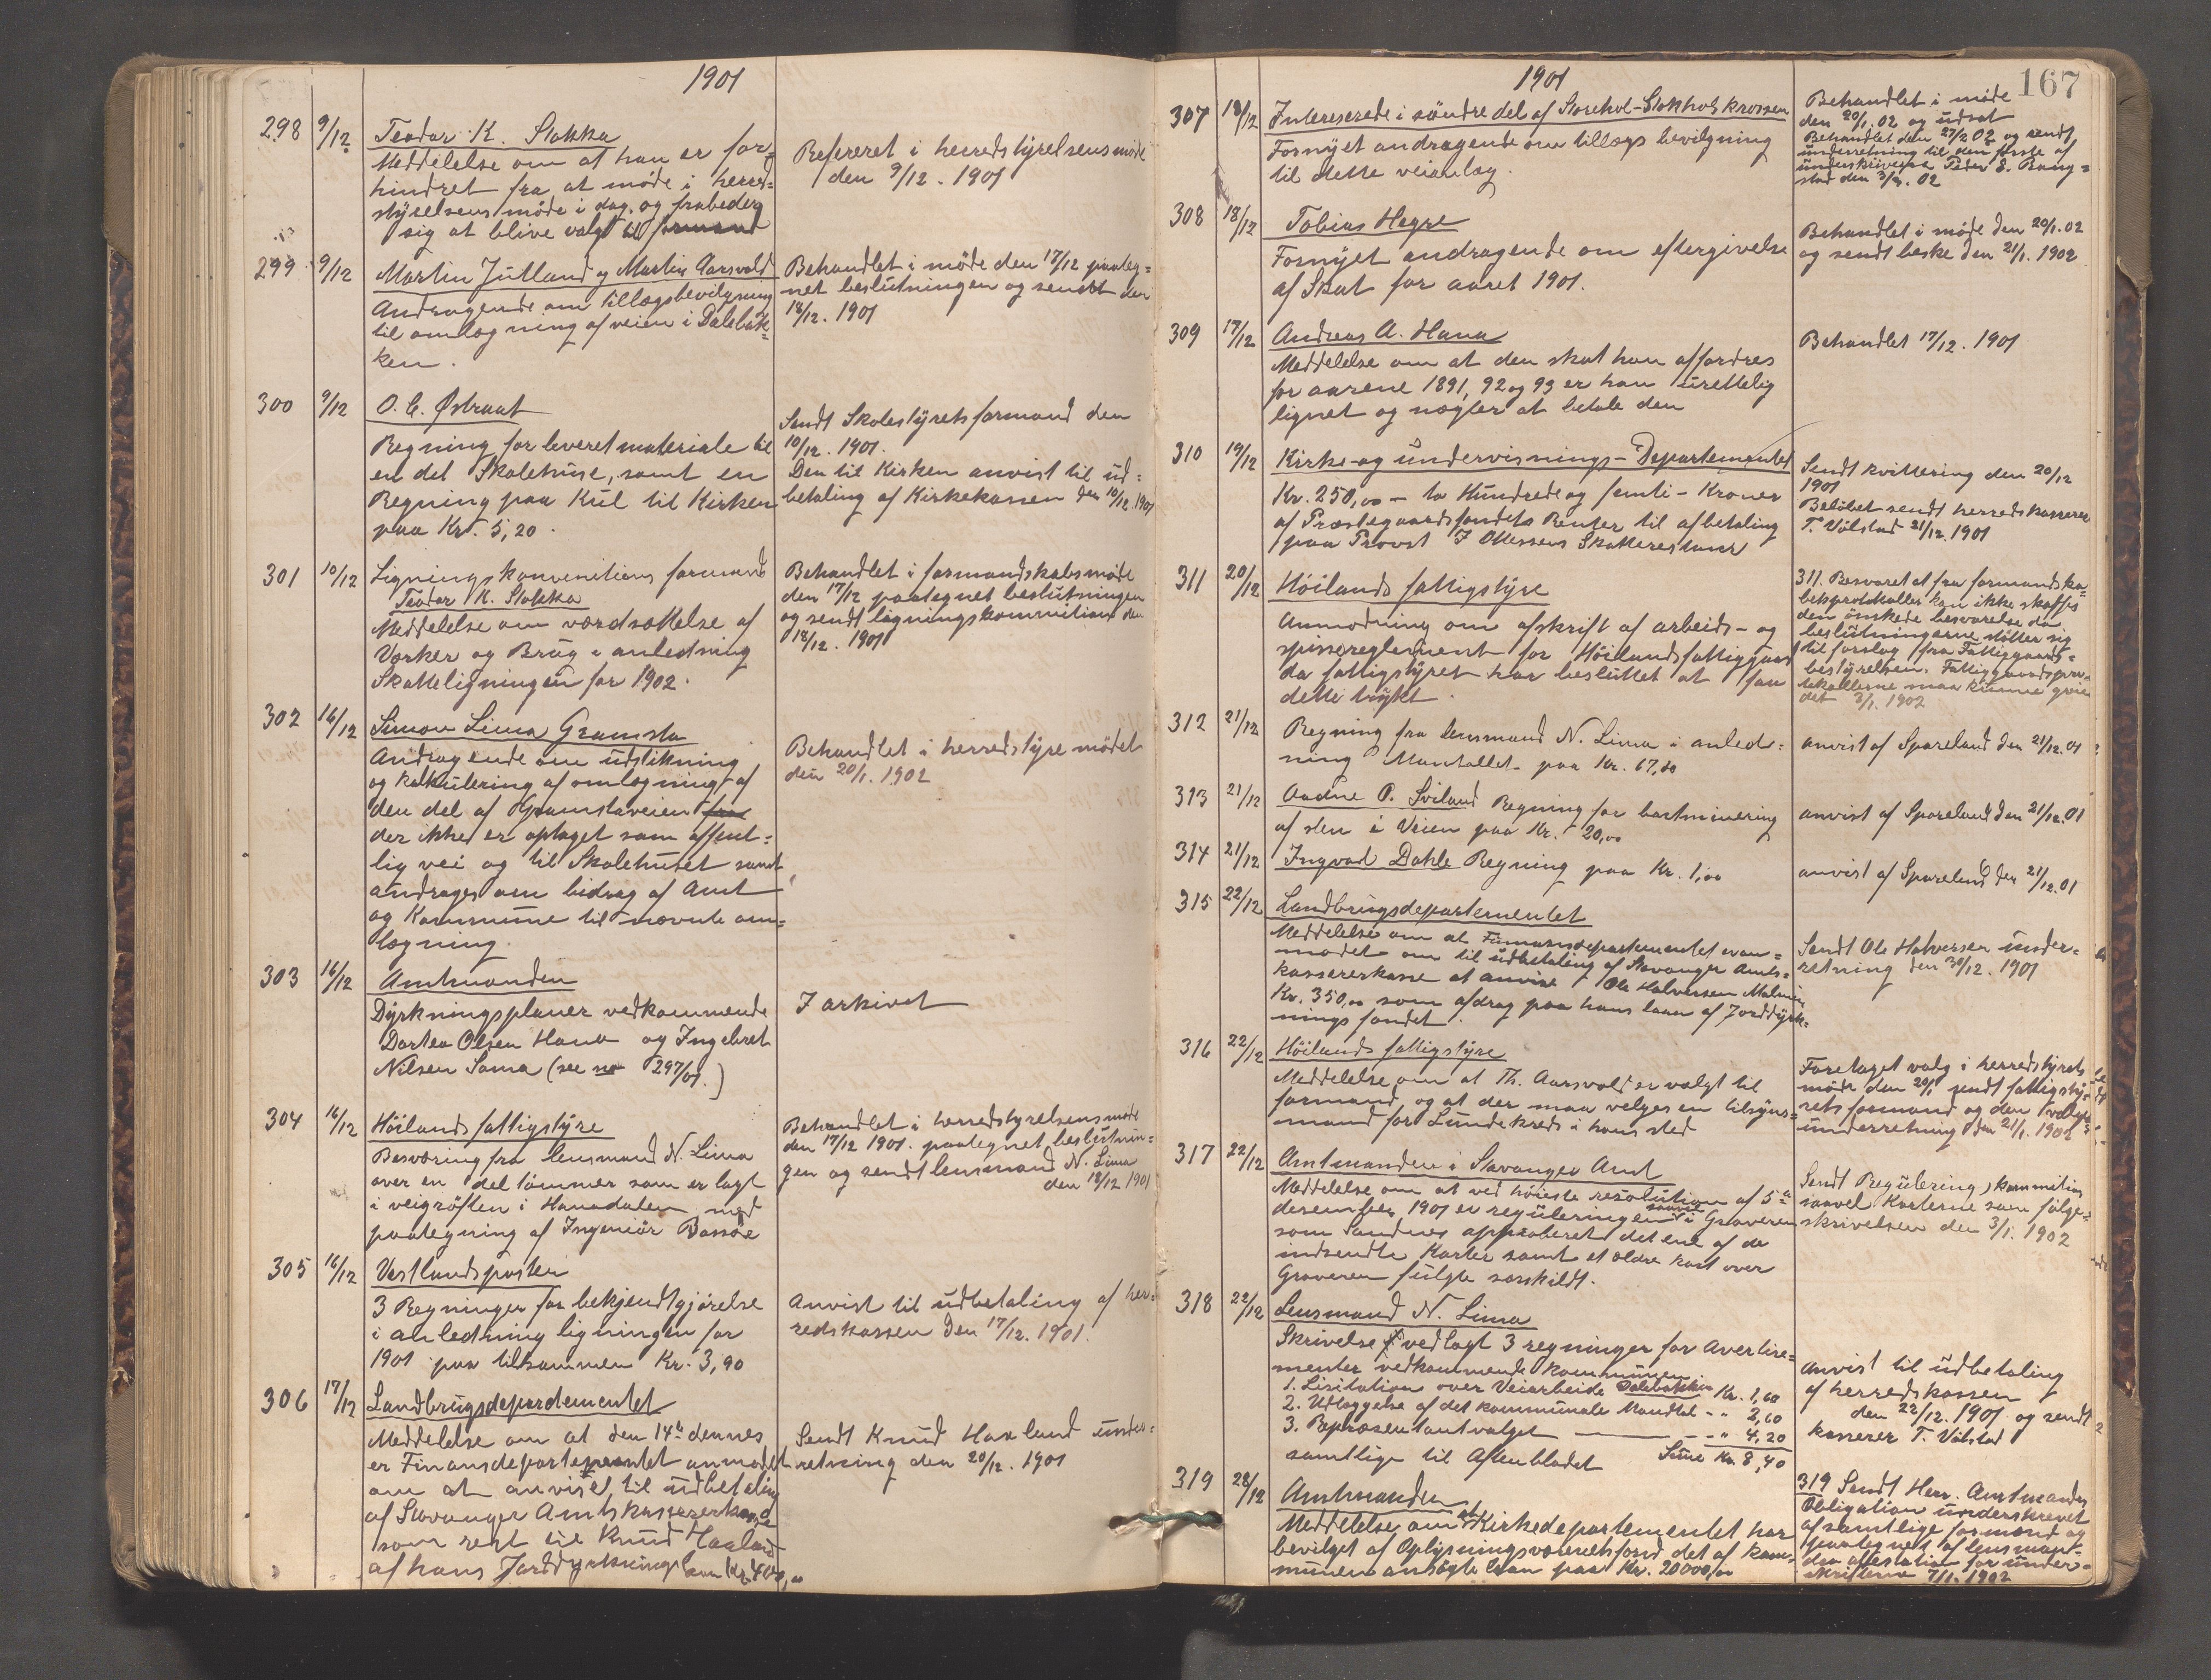 1901
298 9/12 Teodor K. Stokka
Meddelelse om at han er for-
hindret fra at møde i herred-
styrelsens møde i dag, og frabeder
sig at blive valgt til formand
Refereret i herredstyrelsens møde
den 9/12. 1901
299 9/12 Martin Jutland og Martin Aarsvold
Andragende om tillægsbevilgning
til omlægning af veien i Dalebak-
ken.
Behandlet i møde den 17/12 paateg-
net beslutningen og sendt den
18/12. 1901
300 9/12 O. C. Østraat
Regning for leveret materiale til
en del Skolehuse, samt en
Regning paa Kul til Kirken
paa Kr. 5,20.
Sendt Skolestyrets formand den
10/12. 1901.
Den til Kirken anvist til ud-
betaling af Kirkekassen den 10/12. 1901
301 10/12 Ligningskommitions formand
Teodor K. Stokka
Meddelelse om værdsættelse af
Værker og Brug i anledning
Skatteligningen for 1902.
Behandlet i formandskabsmøde
den 17/12 paategnet beslutningen
og sendt ligningskommitionen den
18/12. 1901
302 16/12 Simon Lima Gramsta
Andragende om udstikning
og kalkulering af omlægning af
den del af Gramstaveien fra
der ikke er optaget som offent-
lig vei og til Skolehuset samt
andrages om bidrag af Amt
og Kommune til nævnte om-
lægning.
Behandlet i herredstyre mødet
den 20/1. 1902
303 16/12 Amtmanden
Dyrkningsplaner vedkommende
Dortea Olsen Hana og Ingebret
Nilsen Soma (see no 297/01.)
I arkivet
304 16/12 Høilands fattigstyre
Besværing fra lensmand N. Lima
over en del tømmer som er lagt
i veigrøften i Hanadalen med
paategning af Ingeniør Bassøe
Behandlet i herredstyrelsens møde
den 17/12 1901. paategnet beslutnin-
gen og sendt lensmand N. Lima
den 18/12 1901
305 16/12 Vestlandsposten
3 Regninger for bekjendtgjørelse
i anledning ligningen for
1901 paa tilsammen Kr. 3,90
Anvist til udbetaling af her-
redskassen den 17/12. 1901.
306 17/12 Landbrugsdepardementet
Meddelelse om at den 14de dennes
er Finansdepartementet anmodet
om at anvise til udbetaling
af Stavanger Amtskassererkasse
som rest til Knud Haaland
af hans Jorddyrkningslaan Kr. 400,00
Sendt Knud Haaland under-
retning den 20/12. 1901
1901
167
307 18/12 Intereserede i søndre del af Storehol-Stokholskrossen
Fornyet andragende om tillægs bevilgning
til dette veianlæg.
Behandlet i møde
den 20/1. 02 og udsat
Behandlet den 27/2 02 og sendt
underretning til den første af
underskriverne Peder E. Rong-
stad den 3/3. 02
308 18/12 Tobias Hegre
Fornyet andragende om eftergivelse
af Skat for aaret 1901.
Behandlet i møde den 20/1. 02
og sendt beske den 21/1. 1902
309 17/12 Andreas A. Hana
Meddelelse om at den skat han affordres
for aarene 1891, 92 og 93 er han urettelig
lignet og nægter at betale den
Behandlet 17/12. 1901
310 19/12 Kirke- og undervisnings-Departementet
Kr. 250,00 - to Hundrede og femti - Kroner
af Præstegaardsfondets Renter til afbetaling
paa Provst J Ottessens Skatterestance
Sendt kvittering den 20/12
1901
Beløbet sendt herredskasserer
T. Vølstad 21/12. 1901
311 20/12 Høilands fattigstyre
Anmodning om afskrift af arbeids- og
spisereglement for Høilands fattiggaard
da fattigstyret har besluttet at faa
dette trykt.
311. Besvaret at fra formandska-
betsprotokoller kan ikke skaffes
den ønskede besvarelse da
beslutningerne støtter sig
til forslag fra Fattiggaards-
bestyrelsen. Fattiggaardspro-
tokollerne maa kunne greie
det 3/1. 1902
312 21/12 Regning fra lensmand N. Lima i anled-
ning Mantallet paa Kr. 67,80
anvist af Spareland den 21/12. 01
313 21/12 Aadne P. Sviland Regning for bortminering
af sten i Veien paa Kr. 20,00
anvist af Spareland den 21/12. 01
314 21/12 Ingvad Dahle Regning paa Kr. 1,00
anvist af Spareland den 21/12. 01
315 22/12 Landbrugsdepartementet
Meddelelse om at Finansdepartementet er an-
modet om til udbetaling af Stavanger Amts-
kassererkasse at anvise Ole Halversen Malmin
Kr. 350,00 som afdrag paa hans laan af Jorddyrk-
nings fondet.
Sendt Ole Halversen under-
retning den 30/12. 1901
316 22/12 Høilands fattigstyre
Meddelelse om at Th. Aarsvold er valgt til
formand, og at der maa velges en tilsyns-
mand for Lunde kreds i hans sted
Foretaget valg i herredstyrets
møde den 20/1 sendt fattigsty-
rets formand og den valgte
underretning den 21/1. 1902
317 22/12 Amtmanden i Stavanger Amt
Meddelelse om at ved høieste resolution af 5te
desember 1901 er reguleringen saavel i Graveren
som Sandnes approberet det ene af de
indsendte Karter samt et ældre kart over
Graveren fulgte særskildt.
Sendt Regulerings kommition
saavel Karterne som følge-
skrivelsen den 3/1. 1902
318 22/12 Lensmand N. Lima
Skrivelse vedlagt 3 regninger for Avertise-
menter vedkommende kommunen
1. Lisitation over Veiarbeide Dalebakken Kr. 1,60
2. Udlæggelse af det kommunale Mandtal - " 2,60
3. Repræsentantvalget - " 4,20
samtlige til Aftenbladet Sum Kr. 8,40
anvist til udbetaling
af herredskassen
den 22/12. 1901 og sendt
kasserer T. Vølstad
319 28/12 Amtmanden
Meddelelse om at Kirkedepartementet har
bevilget af Oplysningsvæsenets fond det af kom-
munen ansøgte laan paa Kr. 20000,00
319 Sendt Herr. Amtmanden
Obligation underskrevet
af samtlige formænd og
paategnet af lensman-
den attestation for under-
skrifterne 7/1. 1902